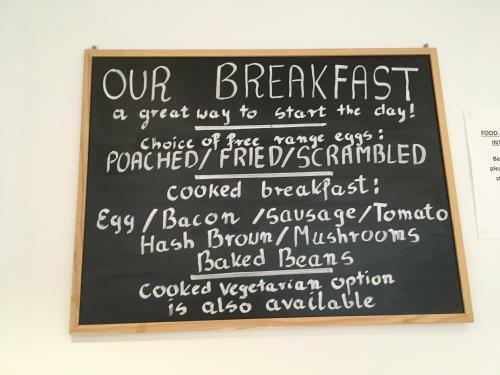 OUR BREAKFAST
a great way to start the day!
choice of free range eggs:
POACHED/FRIED/SCRAMBLED
cooked breakfast:
Egg/Bacon/Sausage/Tomato
Hash Brown/Mushrooms
Baked Beans
cooked vegetarian option
is also available
FOOD
INT
Be
plea